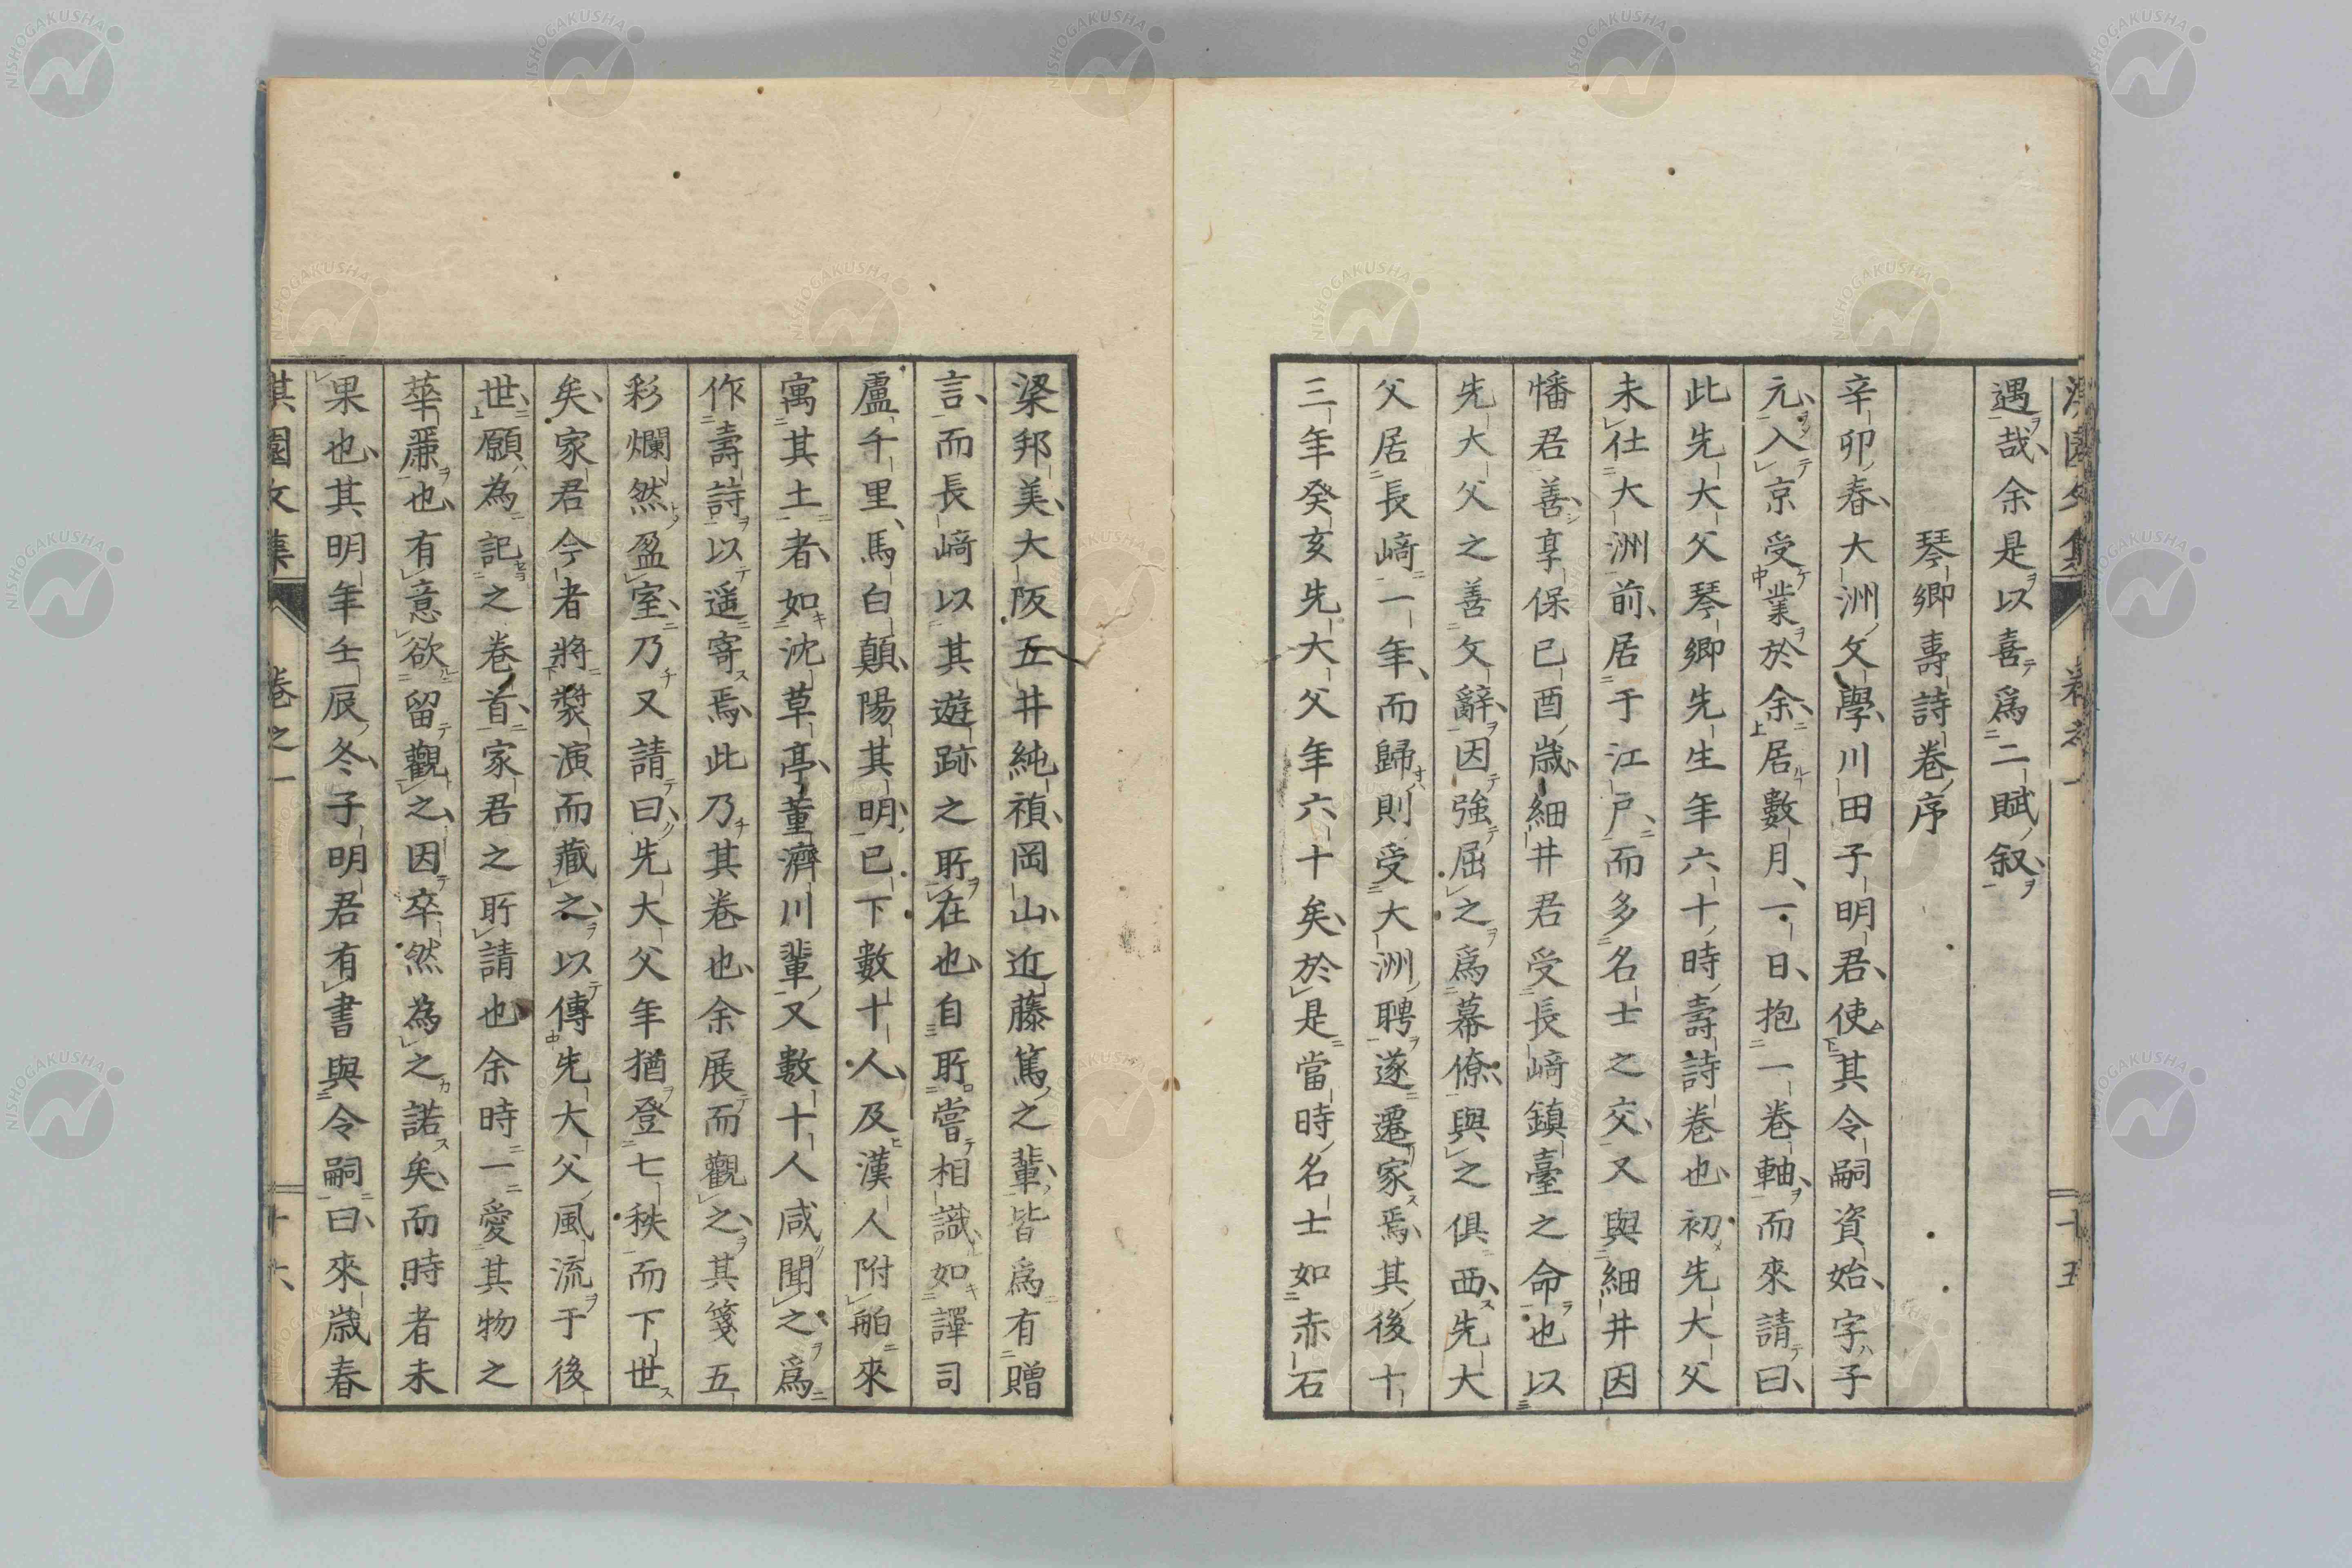 遇哉余是以喜爲二賦叙
琴卿壽詩卷序
辛卯春大洲文學川田子明君使其令嗣資始字子
元入京受業於余居數月一日抱一卷軸而來請曰
此先大父琴卿先生年六十時壽詩卷也初先大父
未仕大洲前居于江戸而多名士之交又與細井因
幡君善享保已酉歳細井君受長﨑鎮臺之命也以
先大父之善文辭因強屈之爲幕僚與之俱西先大
父居長﨑一年而歸則受大洲聘遂遷家焉其後十
三年癸亥先大父年六十矣於是當時名士如赤石
梁邦美大阪五井純禎岡山近藤篤之輩皆爲有贈
言而長﨑以其遊跡之所在也自所嘗相識如譯司
盧千里馬白顛陽其明已下數十人及漢人附舶來
寓其土者如沈草亭董濟川輩又數十人咸聞之爲
作壽詩以遥寄焉此乃其卷也余展而觀之其箋五
彩爛然盈室乃又請曰先大父年猶登七秩而下世
矣家君今者將製演而藏之以傳先大父風流于後
世願為記之卷首家君之所請也余時一愛其物之
華麗也有意欲留觀之因卒然為之諾矣而時者未
果也其明年壬辰冬子明君有書與令嗣曰來歳春
淇園文集 卷之一 十五
淇園文集 卷之一 十六